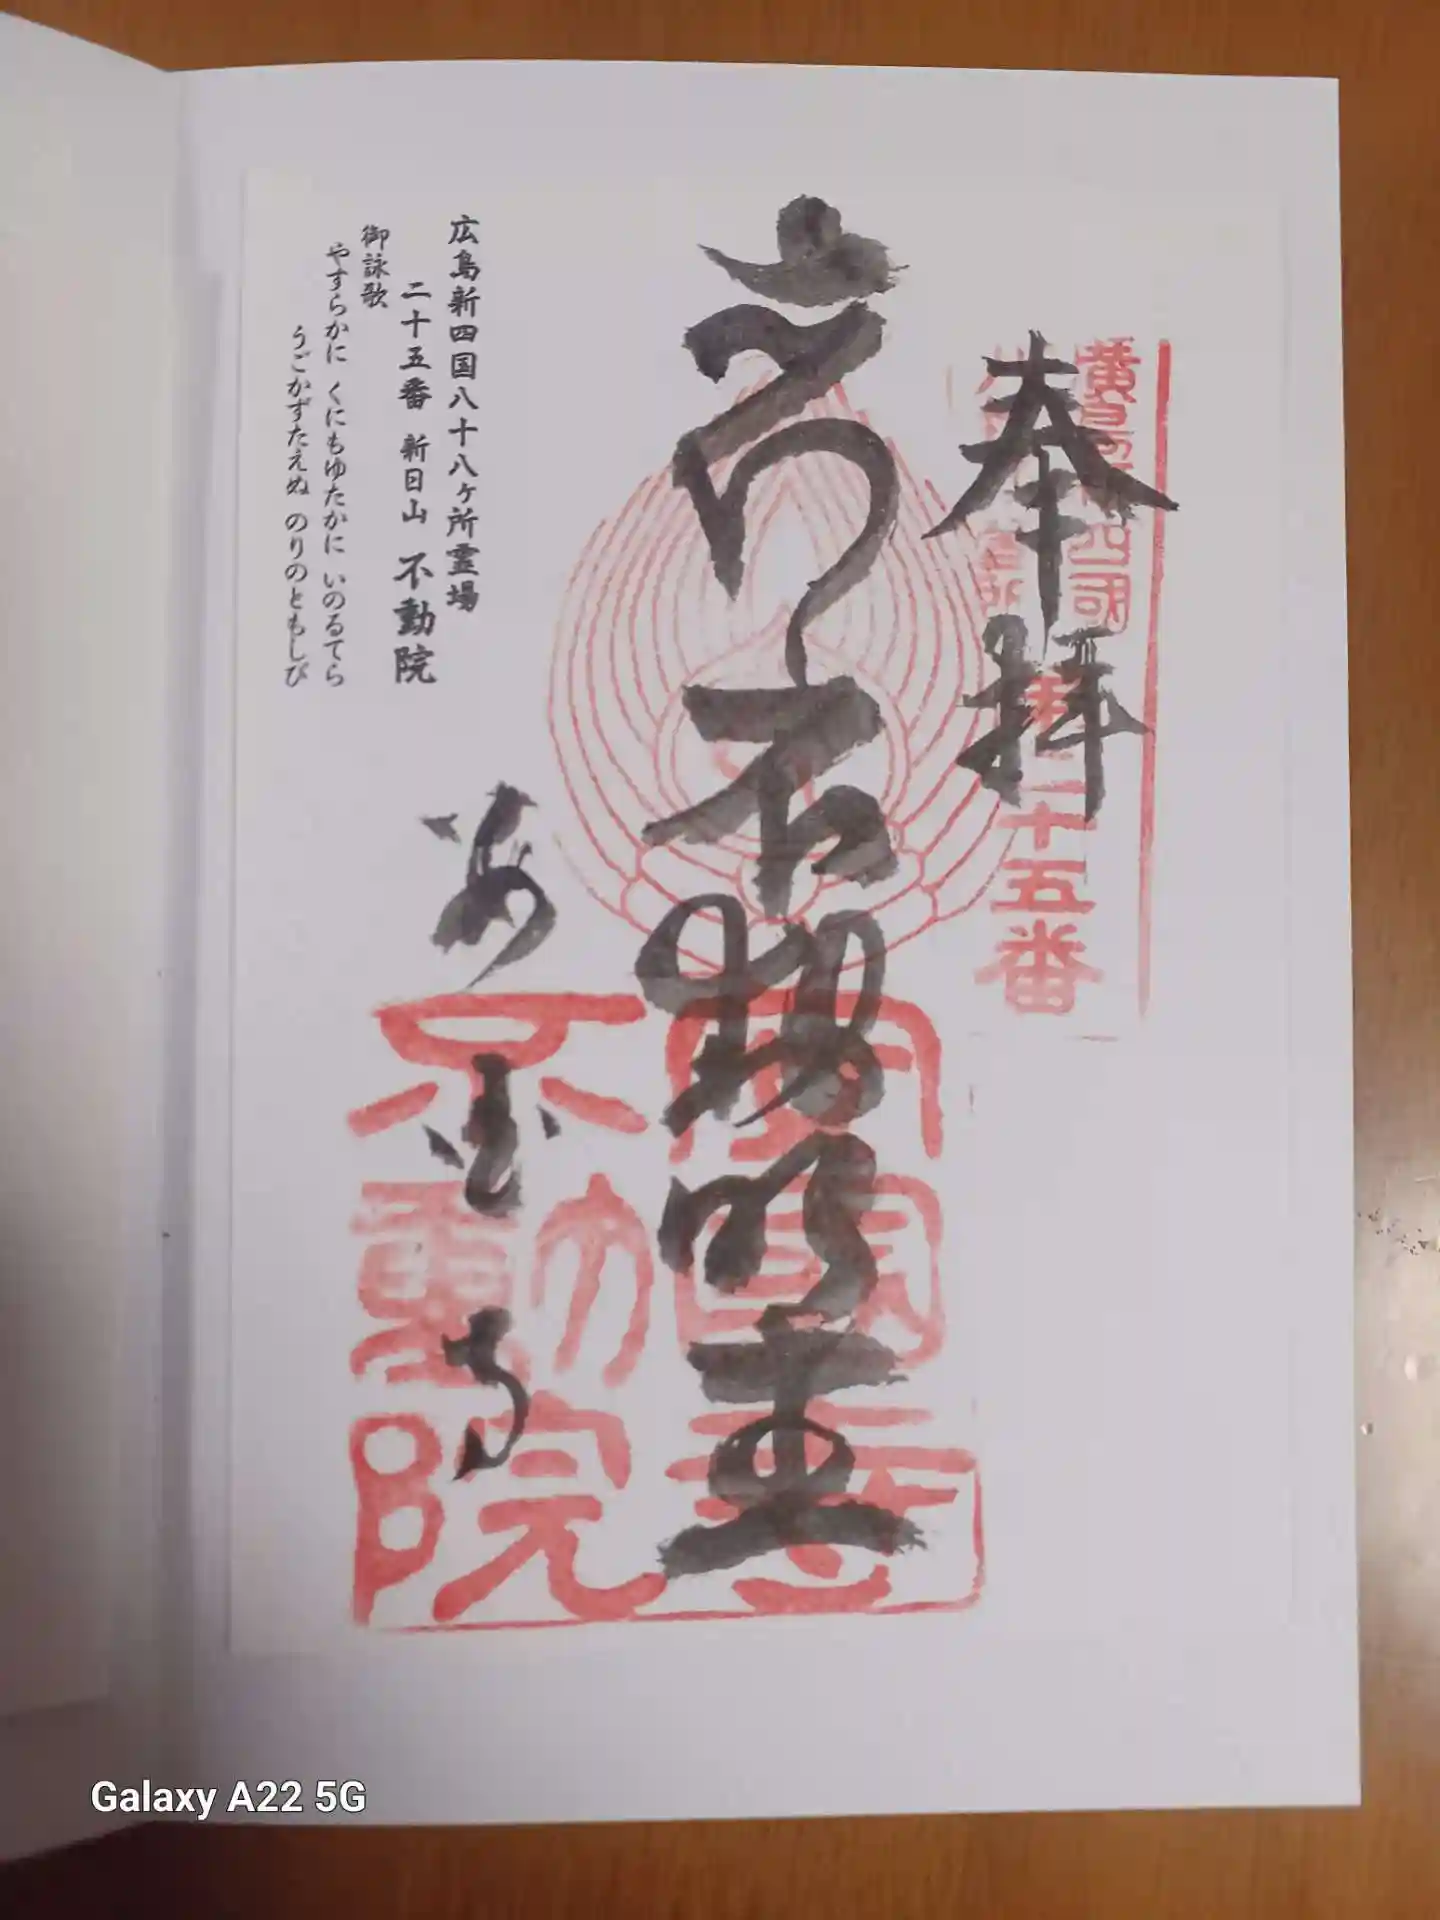 奉拝
二十五番
不動明王
安国寺
不動院
広島新四国八十八ヶ所霊場
二十五番 新日山 不動院
御詠歌
やすらかに くにもゆたかに いのるてら
うごかずたえぬ のりのともしび
Galaxy A22 5G